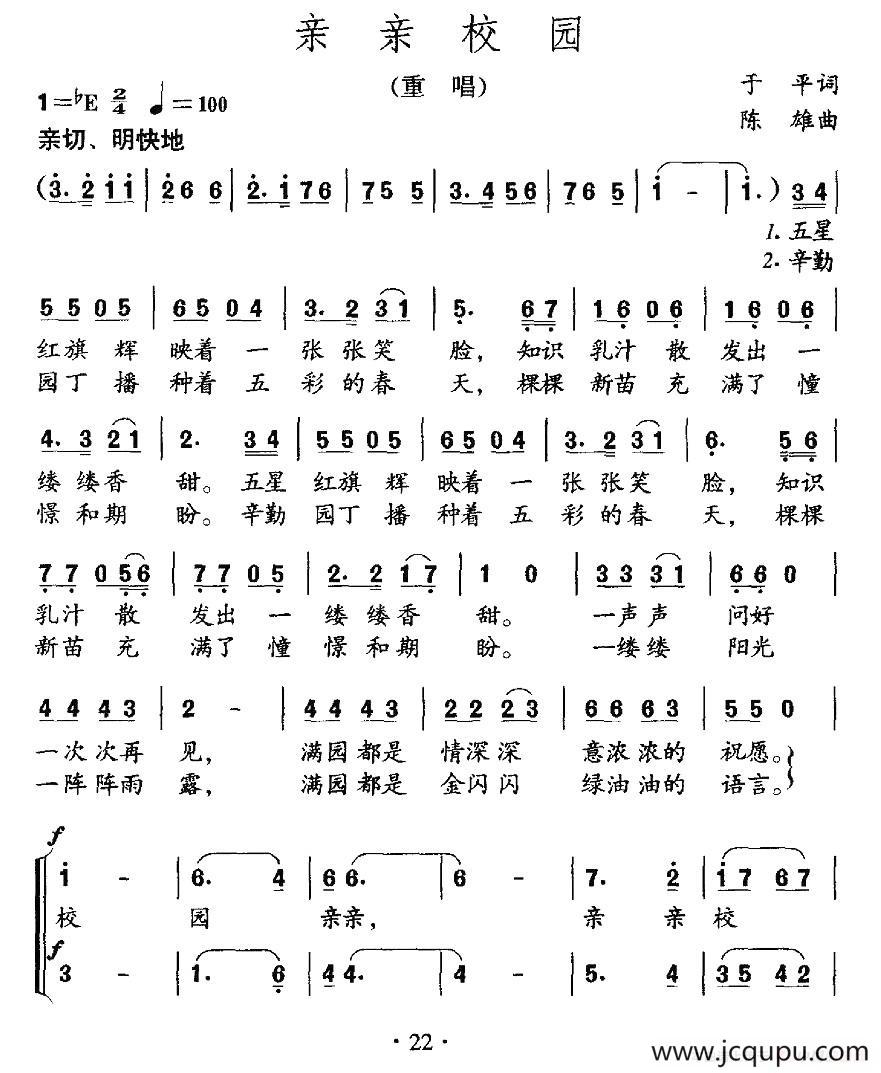 亲亲校园
(重唱)
1=♭E 2/4 ♩=100
于平词
陈雄曲
亲切、明快地
(3. 2 1 1 | 2 6 6 | 2. 1 7 6 | 7 5 5 | 3. 4 5 6 | 7 6 5 | 1 - | 1.) 3 4 |
1. 五星
2. 辛勤
5 5 0 5 | 6 5 0 4 | 3. 2 3 1 | 5. 6 7 | 1 6 0 6 | 1 6 0 6 |
红旗 辉 映着 一 张 张笑 脸, 知识 乳汁 散 发出 一
园丁 播 种着 五 彩 的春 天, 棵棵 新苗 充 满了 憧
4. 3 2 1 | 2. 3 4 | 5 5 0 5 | 6 5 0 4 | 3. 2 3 1 | 6. 5 6 |
缕 缕香 甜。 五星 红旗 辉 映着 一 张 张笑 脸, 知识
憬 和期 盼。 辛勤 园丁 播 种着 五 彩 的春 天, 棵棵
7 7 0 5 6 | 7 7 0 5 | 2. 2 1 7 | 1 0 | 3 3 3 1 | 6 6 0 |
乳汁 散 发出 一 缕 缕香 甜。 一声声 问好
新苗 充 满了 憧 憬 和期 盼。 一缕缕 阳光
4 4 4 3 | 2 - | 4 4 4 3 | 2 2 2 3 | 6 6 6 3 | 5 5 0 |
一次次再 见, 满园都是 情深深 意浓浓的 祝愿。
一阵阵雨 露, 满园都是 金闪闪 绿油油的 语言。
f
1 - | 6. 4 | 6 6. | 6 - | 7. 2 | 1 7 6 7 |
校 园 亲亲, 亲 亲 校
f
3 - | 1. 6 | 4 4. | 4 - | 5. 4 | 3 5 4 2 |
· 22 ·
www.jcqupu.com